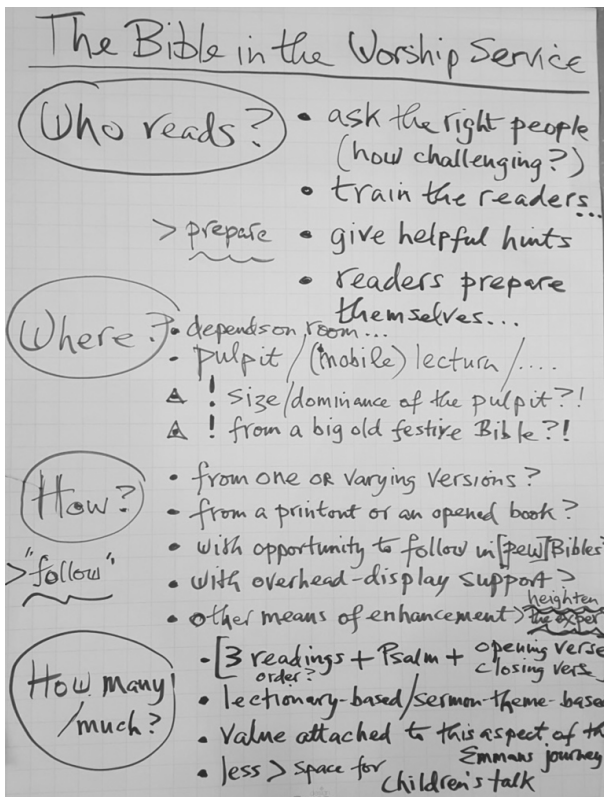 The Bible in the Worship Service
Who reads?
• ask the right people
(how challenging?)
• train the readers...
> prepare • give helpful hints
• readers prepare
themselves...
Where? • depends on room...
• pulpit / (mobile) lecturn / ....
! size/dominance of the pulpit?!
! from a big old festive Bible?!
How?
• from one or varying versions?
• from a printout or an opened book?
• with opportunity to follow in [pew] Bibles?
> "follow" • with overhead-display support?
heighten
• other means of enhancement > the exper
How many
/much?
• [3 readings + Psalm + opening verse
order? closing verse
• lectionary-based/sermon-theme-base
• Value attached to this aspect of th
Emmaus journey
• less > space for
children's talk